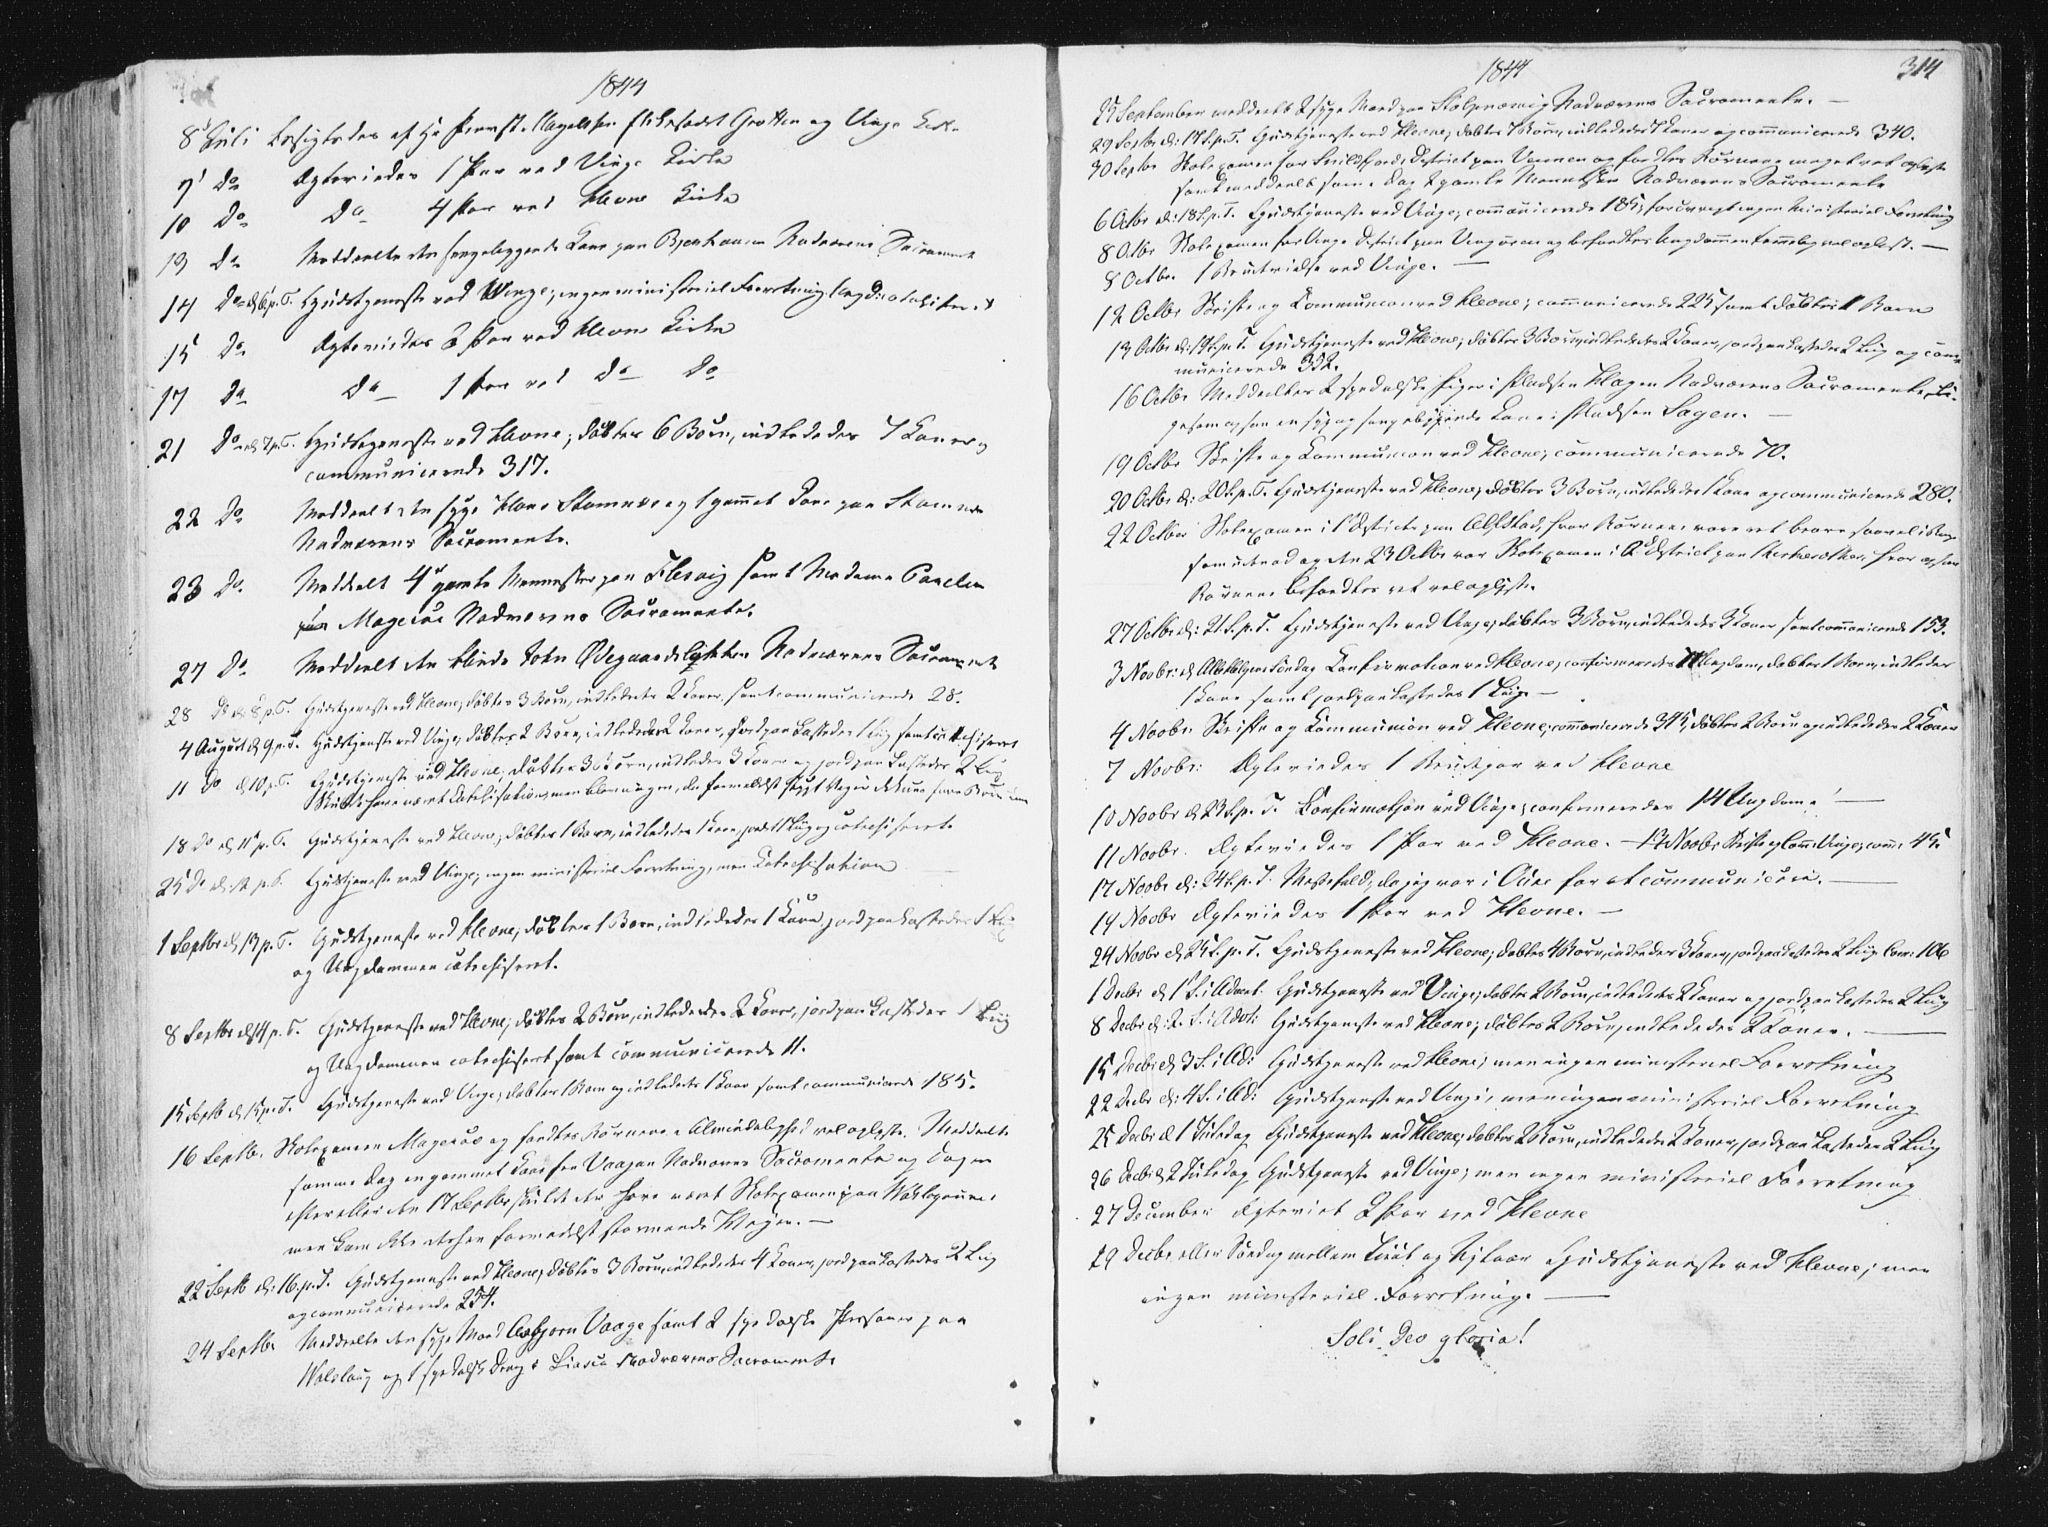 1844
8de Juli besigtedes af Hr Provst Magelssen Præstegaard Grotten og Vinje Kirke
9de Do Ægteviedes 1 Par ved Vinje Kirke
10 Do Do 4 Par ved Hevne Kirke
13 Do Meddeelte den sengeliggende Kone paa Bjerkaasen Nadverens Sacrament
14 Do d: 6 p. T. Gudstjeneste ved Vinje; ingen ministeriel Forretning
15 Do Ægteviedes 2 Par ved Hevne Kirke
17 Do Do 1 Par ved Do Do
21 Do d 7 p. T. Gudstjeneste ved Hevne; døbtes 6 Børn, indlededes 7 Koner og
communicerede 317.
22 Do Meddeelt den syge Hans Stamnæs og 1 gammel Kone paa Stamnes
Nadverens Sacramente.
23 Do Meddeelt 4 gamle Mennesker paa Flesvig samt Madame Parelius
paa Magerøe Nadverens Sacramente.
27 Do Meddeelt den blinde John Ødegaardslykken Nadverens Sacrament
28 Do d 8 p. T. Gudstjeneste ved Hevne, døbtes 3 Børn, indlededes 2 Koner, samt communicerede 28.
4 August d 9 p. T. Gudstjeneste ved Vinje, døbtes 2 Børn, indlededes 2 Koner, jordpaakastedes 1 Lig samt catechiseret
11 Do d 10 p. T. Gudstjeneste ved Hevne; døbtes 3 Børn, indlededes 3 Koner og jordpaakastedes 2 Lig
Skulde have været Catechisation, men blev ingen, da formedelst stygt Veir ikkun faae Børn
18 Do d 11 p. T. Gudstjeneste ved Hevne; døbtes 1 Barn, indlededes 1 Kone, jordet 1 Lig og catechiseret
25 Do d: 12 p. T. Gudstjeneste ved Vinje; ingen ministeriel Forretning, men Catechisation
1 Septbr d 13 p. T. Gudstjeneste ved Hevne; døbtes 1 Barn, indlededes 1 Kone, jordpaakastedes 1 Lig
og Ungdommen catechiseret.
8 Septbr d 14 p. T. Gudstjeneste ved Hevne; døbtes 2 Børn, indlededes 2 Koner, jordpaakastedes 1 Lig
og Ungdommen catechiseret samt communicerede 11.
15 Septb d 15 p. T. Gudstjeneste ved Vinje; døbtes 1 Barn og indlededes 1 Kone samt communicerede 185.
16 Septb. Skoleexamen Magerøe og fandtes Børnene i Almindelighed vel oplyste. Meddeelte
samme Dag en gammel Kone fra Vaagan Nadverens Sacramente og Dagen
efter eller den 17 Septbr skulde der have været Skoleexamen paa
men kom ikke dertil formedelst stormende Veir. —
22 Septb d: 16 p. T. Gudstjeneste ved Hevne; døbtes 3 Børn, indlededes 4 Koner, jordpaakastedes 2 Lig
og communicerede 254.
24 Septbr Meddeelte den syge Mand Asbjørn Vaage samt 2 spedalske Personer paa
og 1 spedalsk Dreng i Nadverens Sacrament.
1844 314
25 September meddeelt 2 syge Mænd paa Nadverens Sacramente. —
29 Septbr d: 17 S. p. T. Gudstjeneste ved Hevne; døbtes 7 Børn, indlededes 7 Koner og communicerede 340.
30 Septbr Skoleexamen for Snildfjord District paa Vennen og fandtes Børnene meget vel oplyste
samt meddeelt samme Dag 2 gamle Mennesker Nadverens Sacramente
6 Octbr d: 18 S. p. T. Gudstjeneste ved Vinje; communicerede 185; forøvrigt ingen Ministeriel Forretning
8 Octbr Skoleexamen for Vinje District paa Vingøren og befandtes Ungdommen temmelig vel oplyst. —
8 Octbr. 1 Brudevielse ved Vinje. —
12 Octbr Skrifte og Communion ved Hevne; communicerede 225 samt døbtes 1 Barn
13 Octbr d: 19 S. p. T. Gudstjeneste ved Hevne; døbtes 3 Børn, indlededes 2 Koner, jordpaakastedes 2 Lig og com-
municerede 352.
16 Octbr Meddeeltes 2 spedalske Piger i Pladsen Hagen Nadverens Sacramente, li-
gesom ogsaa en syg og sengeliggende Kone i Pladsen Sagen. —
19 Octbr Skrifte og Communion ved Hevne; communicerede 70.
20 Octbr d: 20 S. p. T. Gudstjeneste ved Hevne; døbtes 3 Børn, indlededes 1 Kone og communicerede 280.
22 October Skoleexamen i 1 District paa Belstad, hvor Børnene vare ret brave saavel i Bog
som udenad og den 23 Octbr var Skoleexamen i 2 District paa hvor ogsaa
Børnene befandtes ret vel oplyste.
27 Octbr d: 21 S. p. T. Gudstjeneste ved Vinje; døbtes 3 Børn, indlededes 3 Koner samt communicerede 153.
3 Novbr: d Allehelgens Søndag Confirmation ved Hevne; confirmeredes Ungdom, døbtes 1 Barn, indlededes
1 Kone samt jordpaakastedes 1 Lig —
4 Novbr Skrifte og Communion ved Hevne; communicerede 345, døbtes 2 Børn og indlededes 2 Koner
7 Novbr: Ægteviedes 1 Brudepar ved Hevne
10 Novbr d 23 S. p. T. Confirmation ved Vinje; confirmeredes 14 Ungdom. —
11 Novbr. Ægteviedes 1 Par ved Hevne. — 13 Novbr Skrifte og Com: Vinje; com: 45.
17 Novbr d: 24 S. p. T. Messefald, da jeg var i Aure for at communicere. —
19 Novbr Ægteviedes 1 Par ved Hevne. —
24 Novbr d 25 S. p. T. Gudstjeneste ved Hevne; døbtes 4 Børn, indlededes 3 Koner, jordpaakastedes 2 Lig Com: 106
1 Decbr d 1 S. i Advent. Gudstjeneste ved Vinje; døbtes 2 Børn, indlededes 2 Koner og jordpaakastedes 2 Lig
8 Decbr d: 2 S. i Advt: Gudstjeneste ved Hevne; døbtes 2 Børn, indlededes 2 Koner. —
15 Decbr d 3 S. i Ad: Gudstjeneste ved Hevne; men ingen ministeriel Forretning
22 Decbr d: 4 S. i Ad: Gudstjeneste ved Vinje, men ingen ministeriel Forretning
25 Decbr d 1 Juledag Gudstjeneste ved Hevne; døbtes 2 Børn, indlededes 2 Koner, jordpaakastedes 2 Lig
26 Decbr d 2 Juledag Gudstjeneste ved Vinje; men ingen ministeriel Forretning
27 December Ægteviet 2 Par ved Hevne
29 Decbr eller Søndag mellem Juul og Nytaar Gudstjeneste ved Hevne; men
ingen ministeriel Forretning. —
Soli Deo gloria!